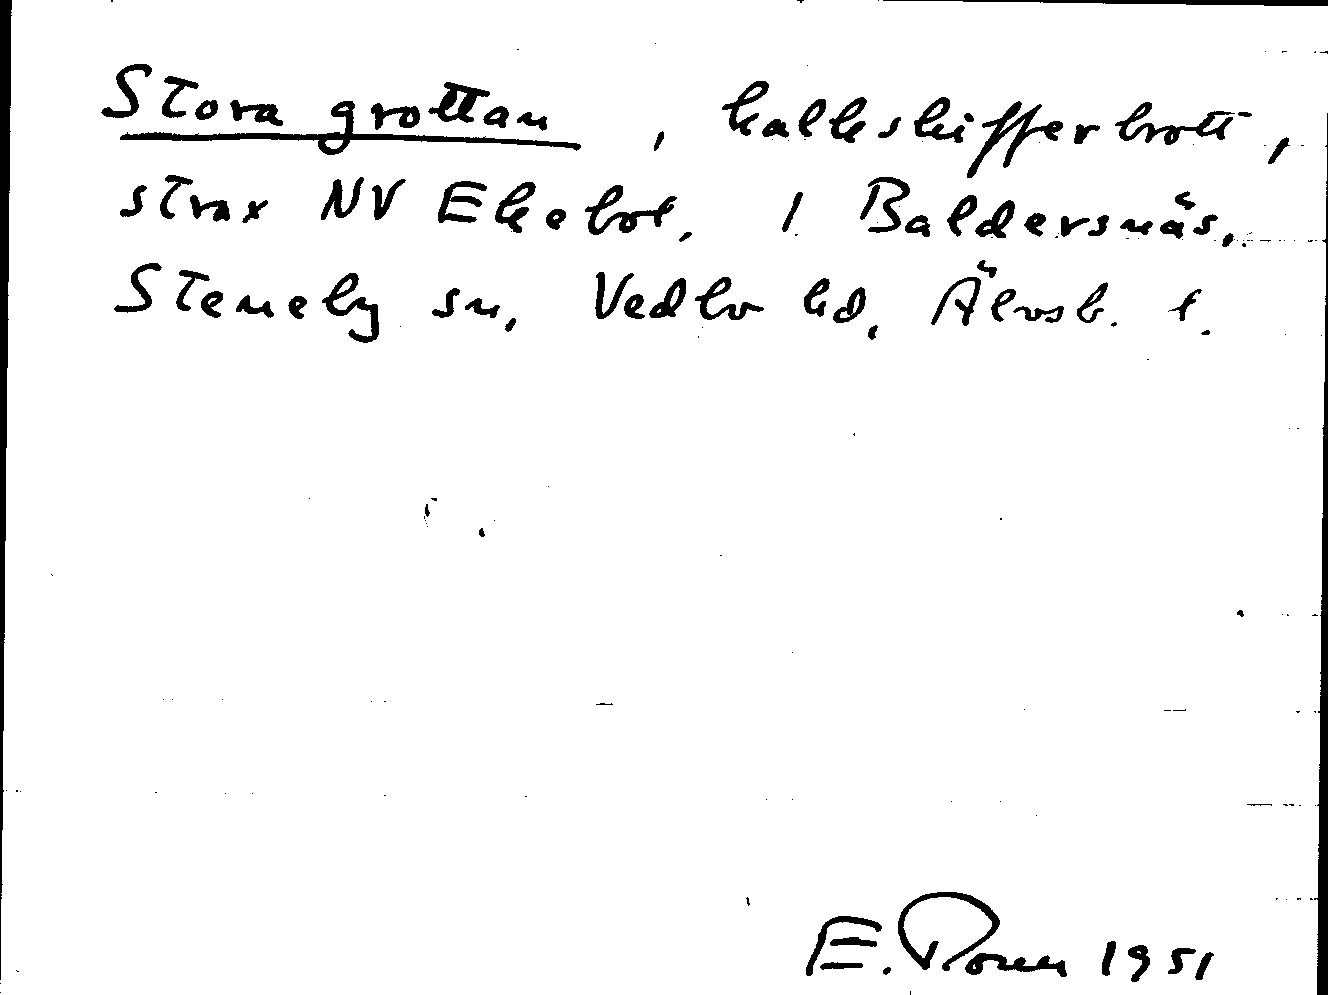 Stora grottan, kalkskifferbrott,
strax NV Ekebol, 1 Baldersnäs,
Steneby sn, Vedbo hd, Älvsb. l.
E. 1951